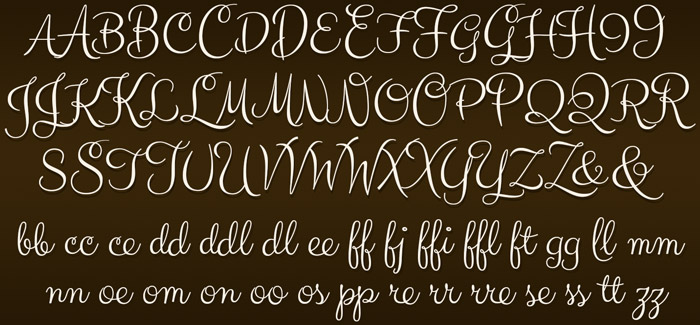 AABBCCDDEEFFGGHHII
JJKKLLMMNNOOPPQQRR
SSTTUUVVWWXXYYZZ&&
bb cc ce dd ddl dl ee ff fj ffi ffl ft gg ll mm
nn oe om on oo os pp re rr rre se ss tt zz